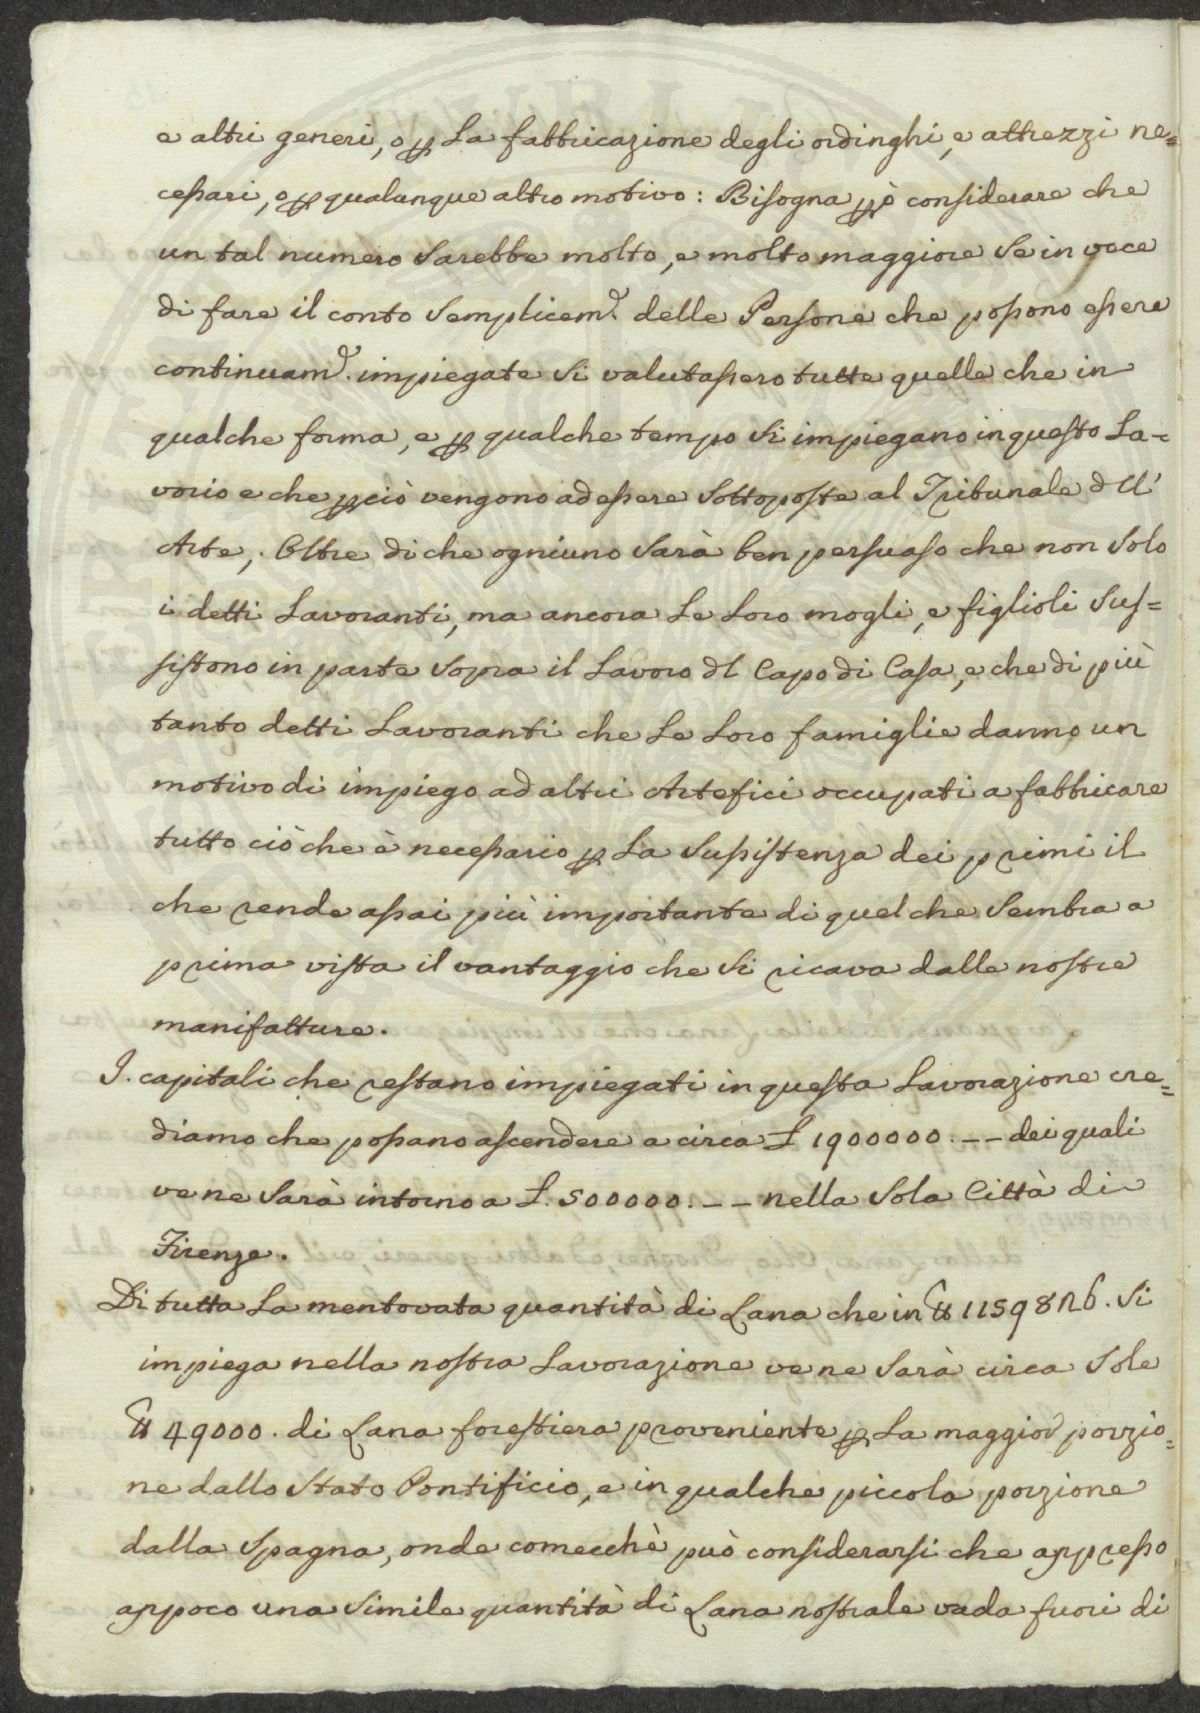 e altri generi, o p la fabbricazione degli ordinghi, e attrezzi ne=
cessari, o p qualunque altro motivo: Bisogna pò considerare che
un tal numero sarebbe molto, e molto maggiore se in vece
di fare il conto semplicem.e delle Persone che possono essere
continuam.e impiegate si valutassero tutte quelle che in
qualche forma, e p qualche tempo si impiegano in questo la=
vorio e che pciò vengono ad essere sottoposte al Tribunale dll'
Arte; Oltre di che ogniuno sarà ben persuaso che non solo
i detti Lavoranti, ma ancora le loro mogli, e figlioli sus=
sistono in parte sopra il lavoro dl Capo di Casa, e che di più
tanto detti Lavoranti che le loro famiglie danno un
motivo di impiego ad altri Artefici occupati a fabbricare
tutto ciò che è necessario p la sussistenza dei primi il
che rende assai più importante di quel che sembra a
prima vista il vantaggio che si ricava dalle nostre
manifatture.
I. capitali che restano impiegati in questa Lavorazione cre=
diamo che possano ascendere a circa £ 1900000.-- dei quali
ve ne sarà intorno a £. 500000.-- nella sola Città di
Firenze.
Di tutta la mentovata quantità di Lana che in si
impiega nella nostra Lavorazione ve ne sarà circa sole
℔ 49000. di Lana forestiera proveniente p la maggior porzio=
ne dallo Stato Pontificio, e in qualche piccola porzione
dalla Spagna, onde comecchè può considerarsi che appresso
appoco una simile quantità di Lana nostrale vada fuori di